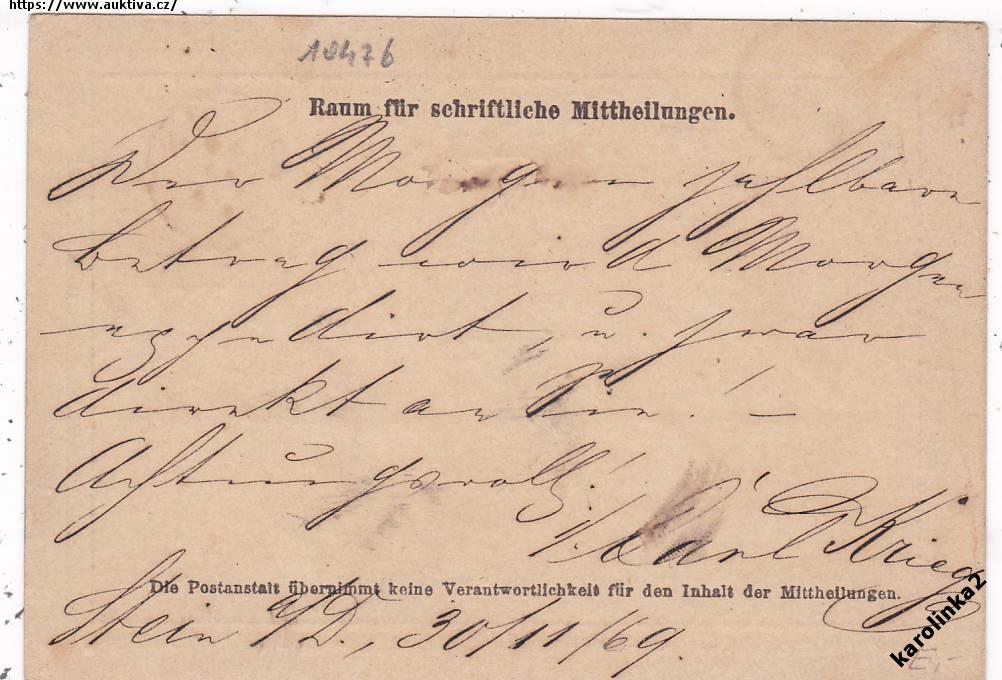 https://www.auktiva.cz/
18476
Raum für schriftliche Mittheilungen.
Der Morgen zahlbare
Betrag wird Morgen
expedirt, u. zwar
direkt an Sie! –
Achtungsvoll!
Carl Krieg
Die Postanstalt übernimmt keine Verantwortlichkeit für den Inhalt der Mittheilungen.
Stein a/D., 30/11/69.
karolinka2